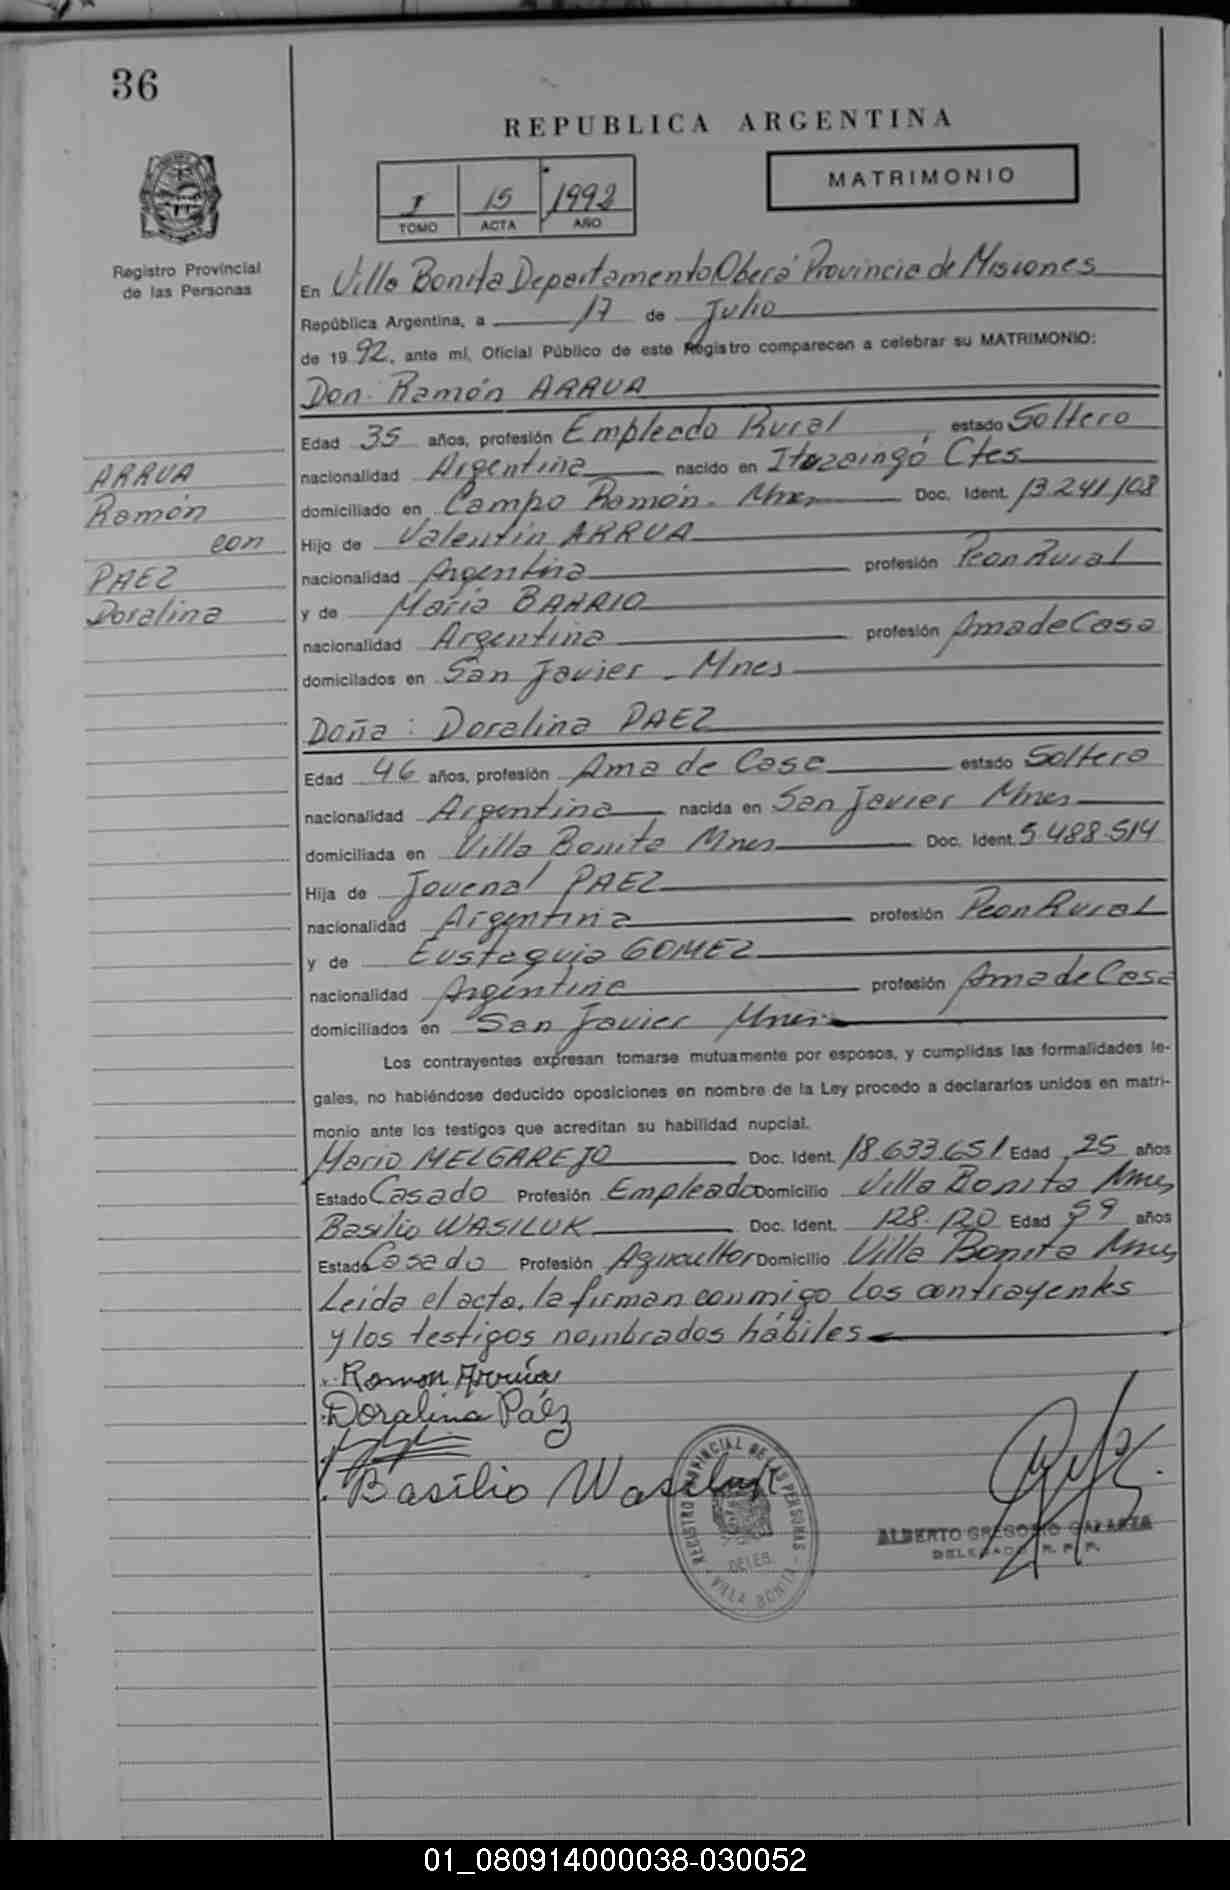 36
REPUBLICA ARGENTINA
I 15 1992
TOMO ACTA AÑO
MATRIMONIO
Registro Provincial
de las Personas
En Villa Bonita Departamento Oberá Provincia de Misiones
República Argentina, a 17 de Julio
de 1992, ante mí, Oficial Público de este Registro comparecen a celebrar su MATRIMONIO:
Don: Ramón ARRUA
Edad 35 años, profesión Empleado Rural estado Soltero
nacionalidad Argentina nacido en Ituzaingó Ctes
domiciliado en Campo Ramón - Mnes Doc. Ident. 13.241.108
Hijo de Valentín ARRUA
nacionalidad Argentina profesión Peon Rural
y de María BARRIO
nacionalidad Argentina profesión Ama de Casa
domiciliados en San Javier - Mnes
ARRUA
Ramón
con
PAEZ
Doralina
Doña: Doralina PAEZ
Edad 46 años, profesión Ama de Casa estado Soltera
nacionalidad Argentina nacida en San Javier Mnes
domiciliada en Villa Bonita Mnes Doc. Ident. 5.488.514
Hija de Jouenal PAEZ
nacionalidad Argentina profesión Peon Rural
y de Eustaquia GOMEZ
nacionalidad Argentina profesión Ama de Casa
domiciliados en San Javier Mnes
Los contrayentes expresan tomarse mutuamente por esposos, y cumplidas las formalidades le-
gales, no habiéndose deducido oposiciones en nombre de la Ley procedo a declararlos unidos en matri-
monio ante los testigos que acreditan su habilidad nupcial.
Mario MELGAREJO Doc. Ident. 18.633.651 Edad 25 años
Estado Casado Profesión Empleado Domicilio Villa Bonita Mnes
Basilio WASILUK Doc. Ident. 128.120 Edad 59 años
Estado Casado Profesión Agricultor Domicilio Villa Bonita Mnes
Leída el acta, la firman conmigo los contrayentes
y los testigos nombrados hábiles
Ramon Arrúa
Doralina Páez
Basilio Wasiluk
REGISTRO PROVINCIAL DE LAS PERSONAS
DELEG.
VILLA BONITA
ALBERTO GREGORIO GALARZA
DELEGADO R. P. P.
01_080914000038-030052